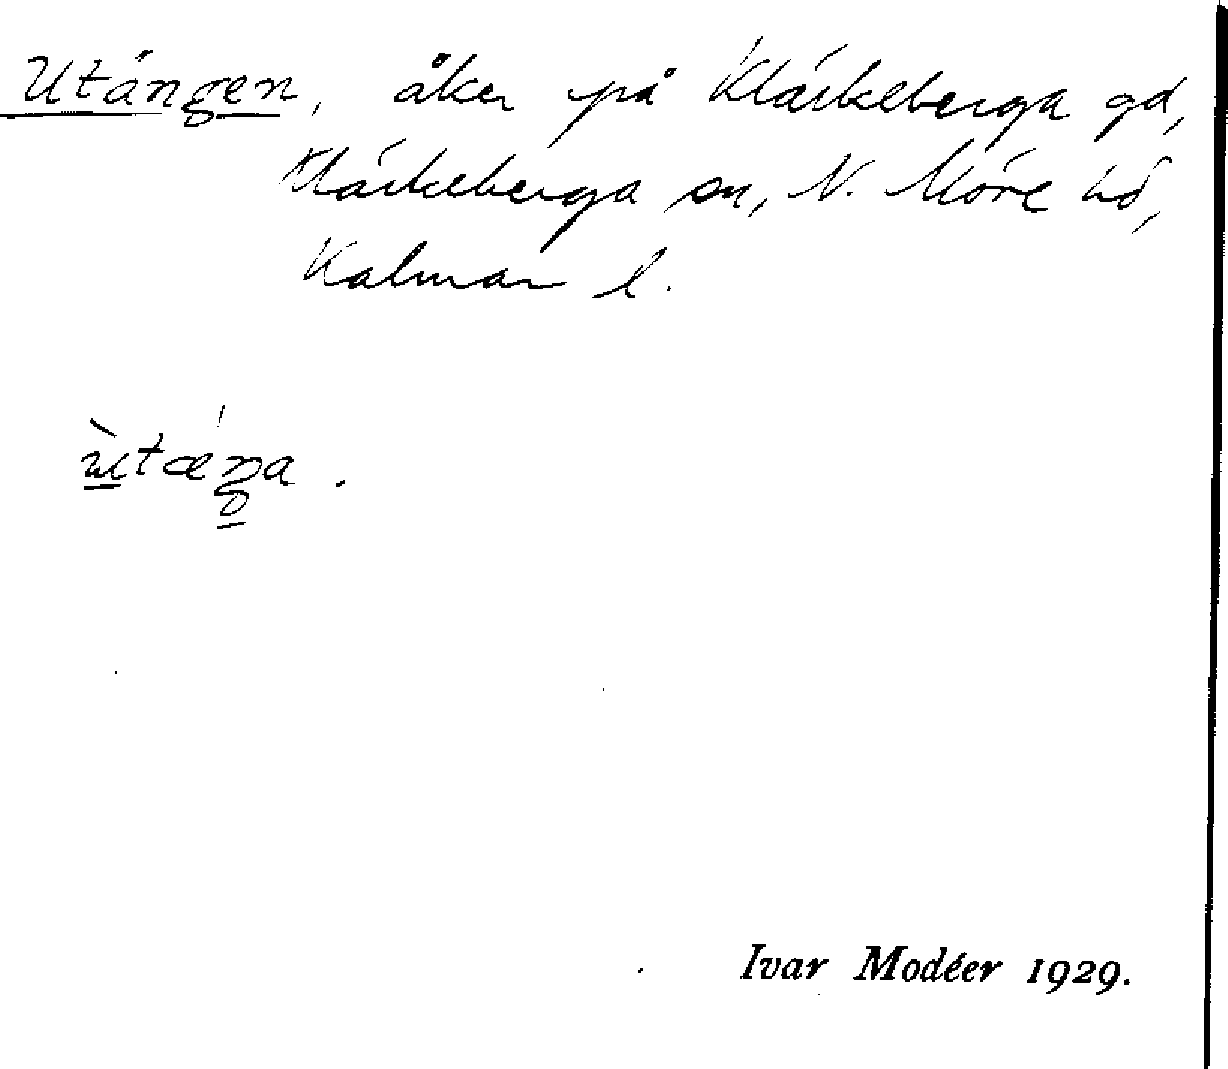 Utängen, åker på Kläckeberga gd,
Kläckeberga sn, N. Möre hd,
Kalmar l.
ùtæ´ŋa.
Ivar Modéer 1929.